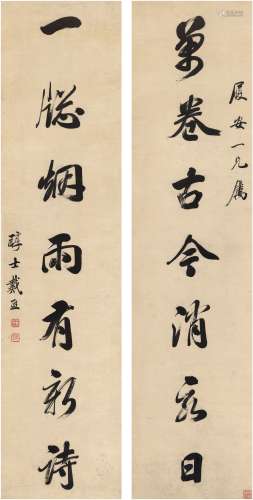 履安一兄屬
萬卷古今消永日
一牕烟雨有新詩
醇士戴熙